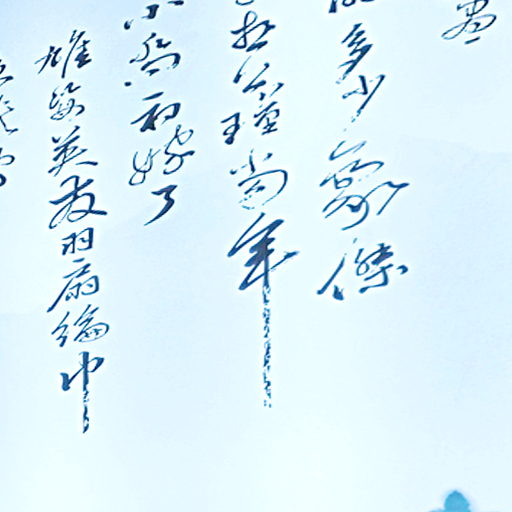 盡
多少豪傑
想公瑾當年
小喬初嫁了
雄姿英发羽扇綸巾